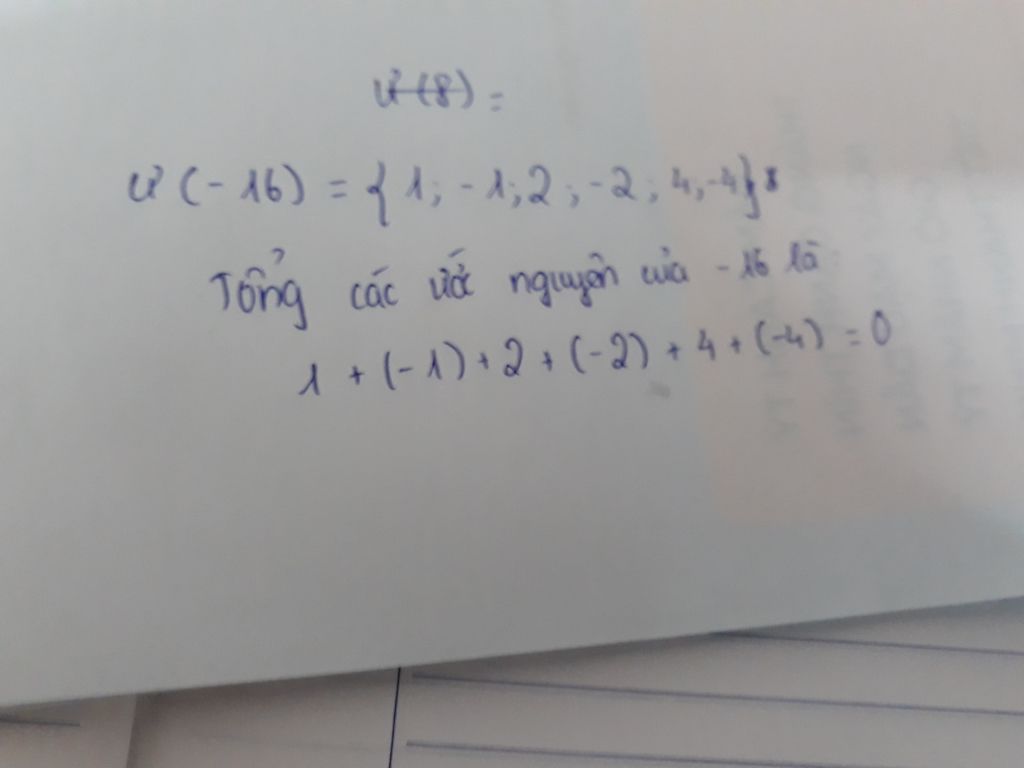 Ư(8) =
Ư(-16) = {1; -1; 2; -2; 4; -4}
Tổng các ướt nguyên của -16 là
1 + (-1) + 2 + (-2) + 4 + (-4) = 0